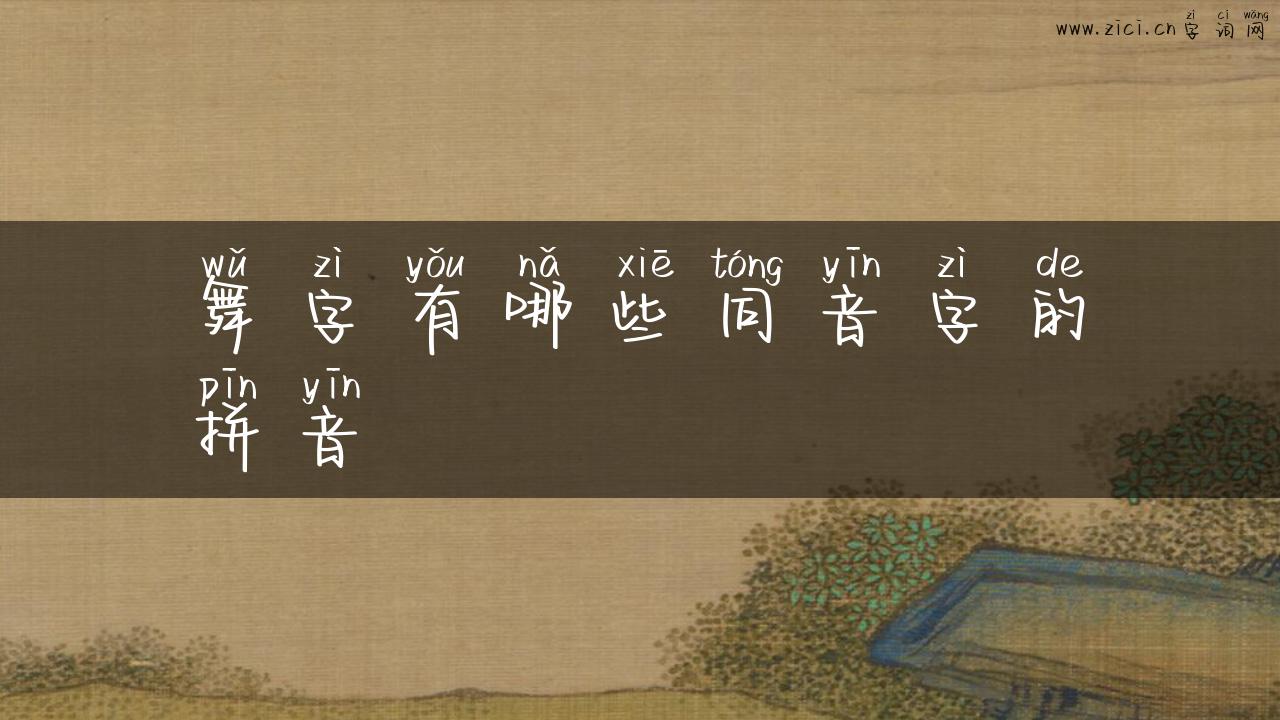 zì cí wǎng
www.zici.cn 字 词 网
wǔ zì yǒu nǎ xiē tóng yīn zì de
舞 字 有 哪 些 同 音 字 的
pīn yīn
拼 音